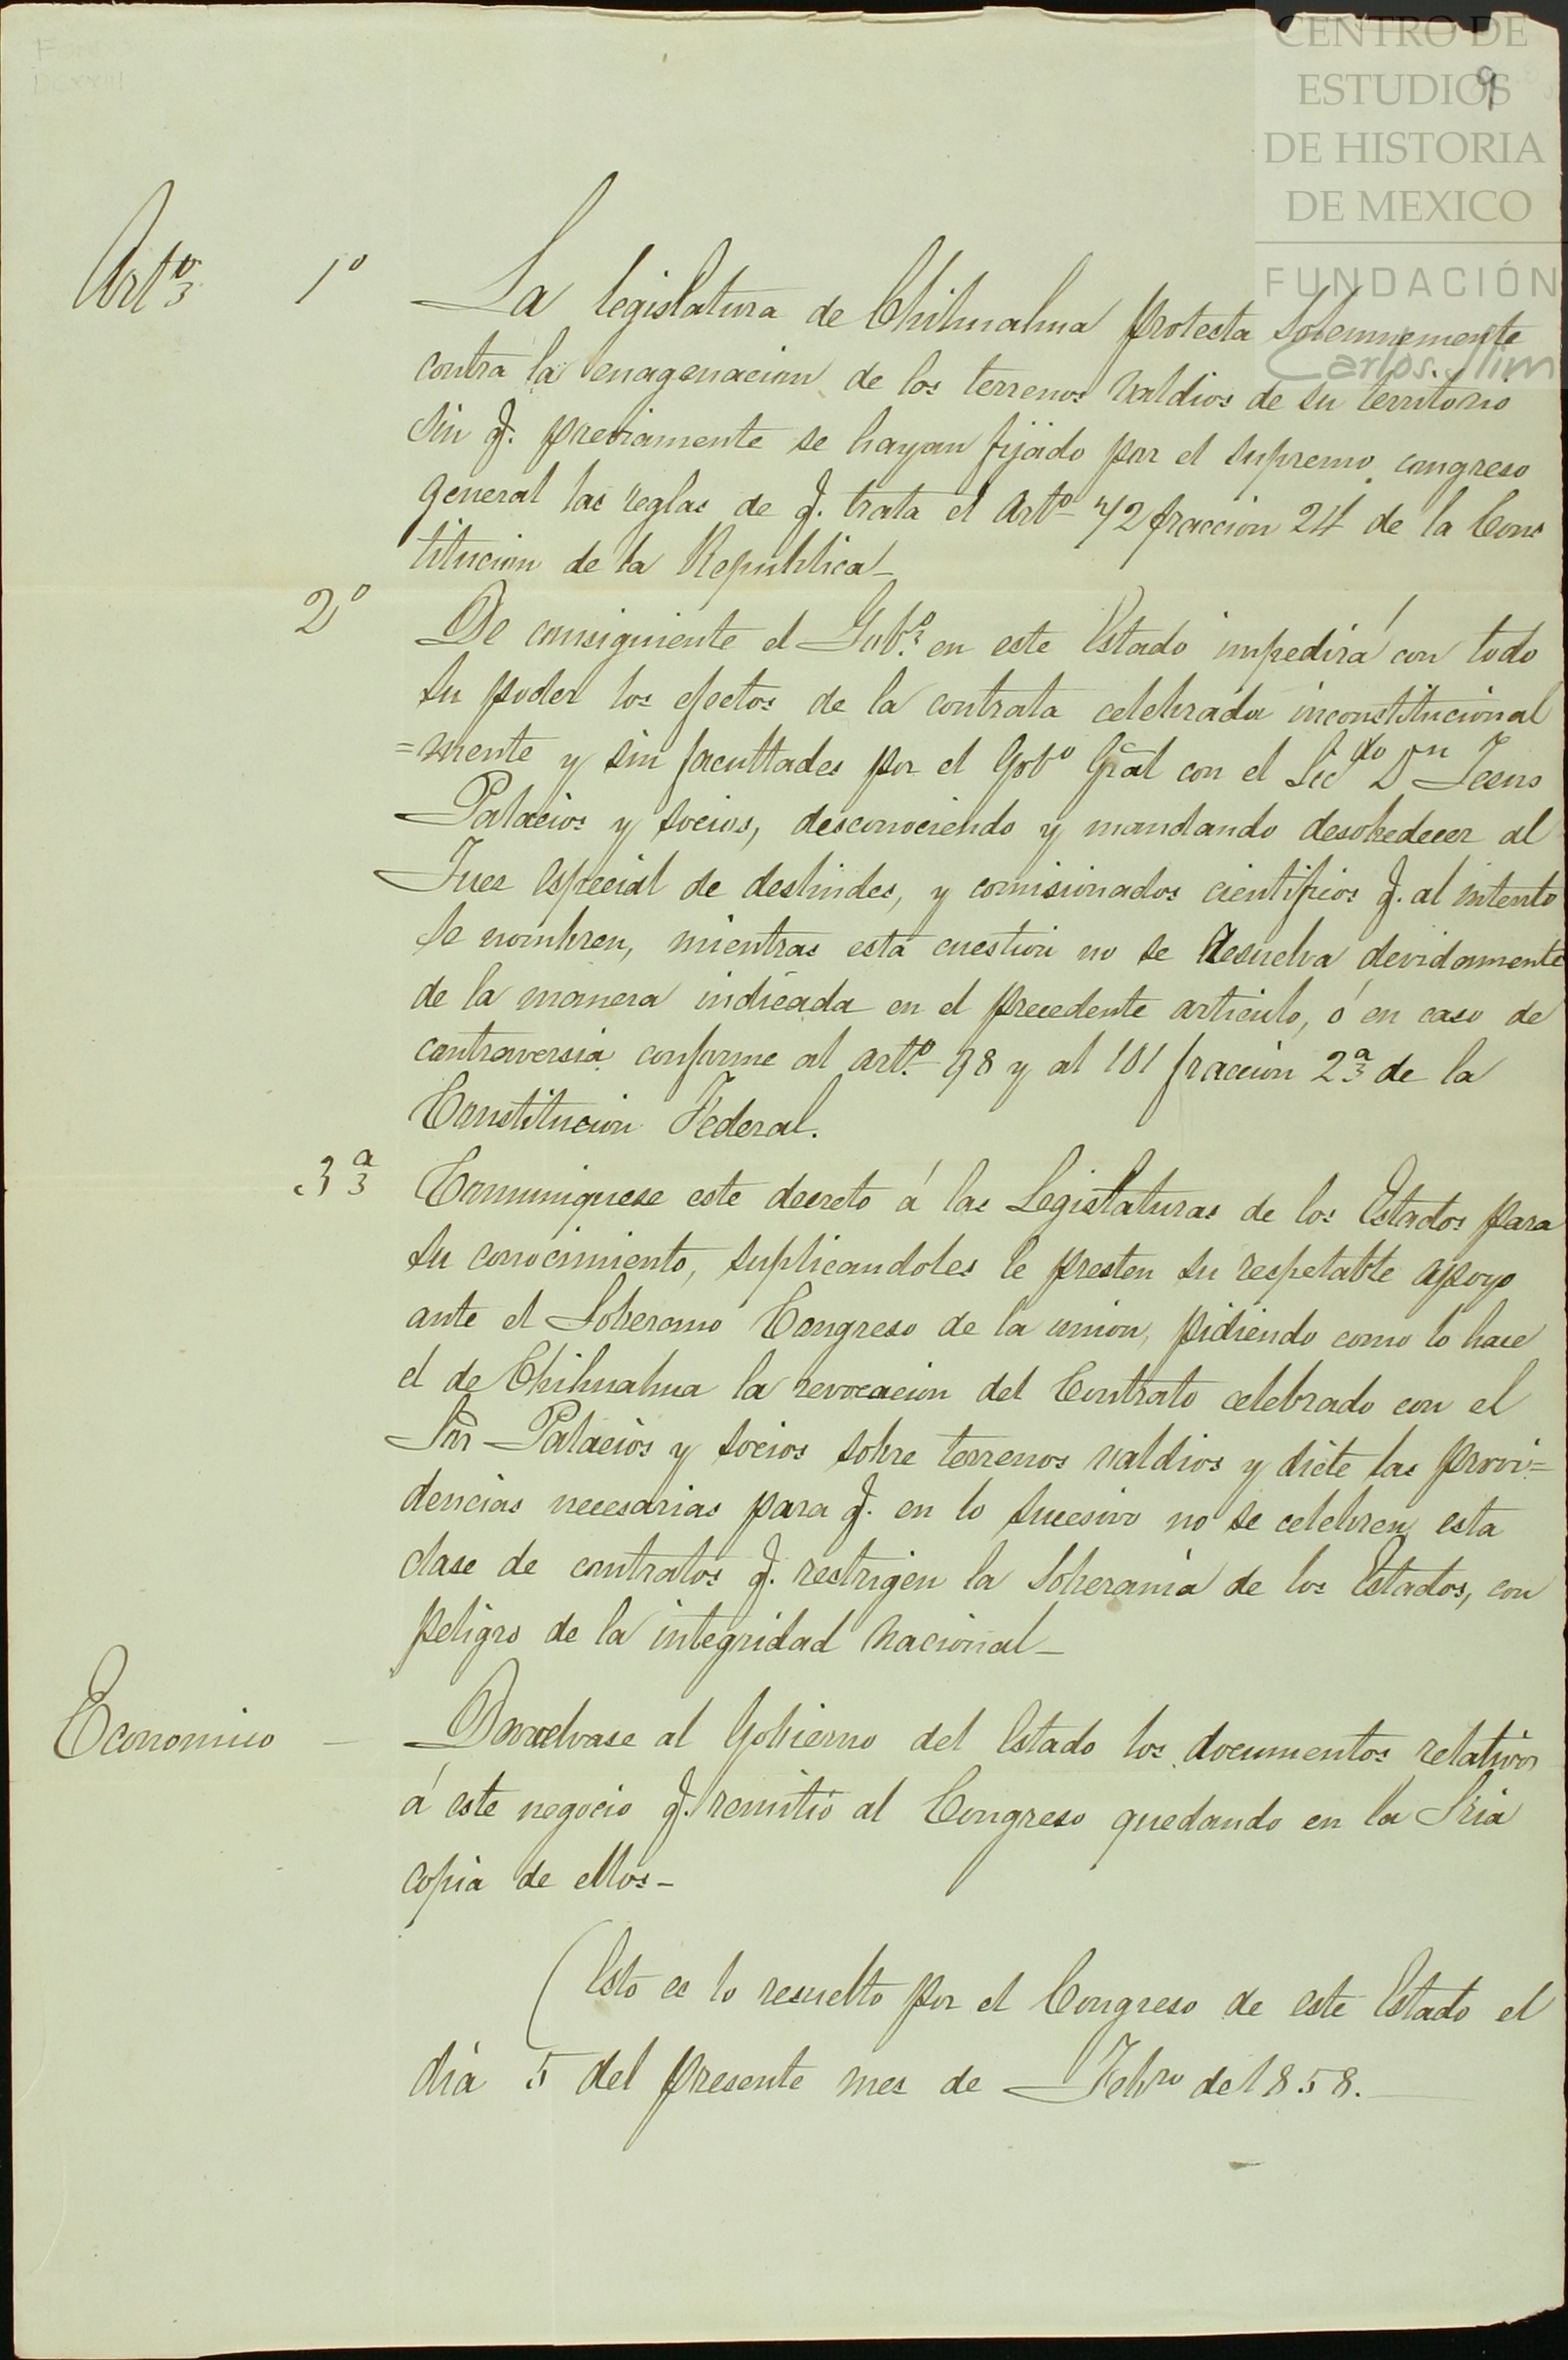 CENTRO DE
ESTUDIOS
DE HISTORIA
DE MEXICO
FUNDACIÓN
Carlos Slim
9
Artº 1º La legislatura de Chihuahua protesta solemnemente
contra la enagenacion de los terrenos valdios de su territorio
sin q. previamente se hayan fijado por el supremo congreso
general las reglas de q. trata el Artº 72 fraccion 24 de la Cons
titucion de la Republica_
2º De consiguiente el Gobº en este Estado impedirá con todo
su poder los efectos de la contrata celebrada inconstitucional
=mente y sin facultades por el Gobº Gral con el Licdo Dn Jesus
Palacios y socios, desconociendo y mandando desobedecer al
Juez especial de deslindes, y comisionados cientificos q. al intento
se nombren, mientras esta cuestion no se resuelva devidamente
de la manera indicada en el precedente articulo, ó en caso de
contraversia conforme al artº 98 y al 101 fraccion 2ª de la
Constitucion Federal.
3ª Comuniquese este decreto á las Legislaturas de los Estados para
su conocimiento, suplicandoles le presten su respetable apoyo
ante el Soberano Congreso de la union, pidiendo como lo hace
el de Chihuahua la revocacion del Contrato celebrado con el
Sor Palacios y socios sobre terrenos valdios y dicte las provi=
dencias necesarias para q. en lo sucesivo no se celebren esta
clase de contratos q. restrigen la Soberania de los Estados, con
peligro de la integridad nacional_
Economico _ Devuelvase al Gobierno del Estado los documentos relativos
á este negocio q. remitio al Congreso quedando en la Sria
copia de ellos_
(Esto es lo resuelto por el Congreso de este Estado el
dia 5 del presente mes de Febro de 1858.